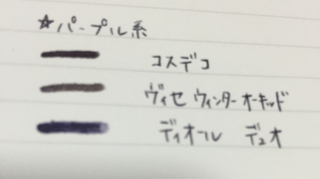 ☆パープル系
コスデコ
ヴィセ ウィンターオーキッド
ディオール デュオ